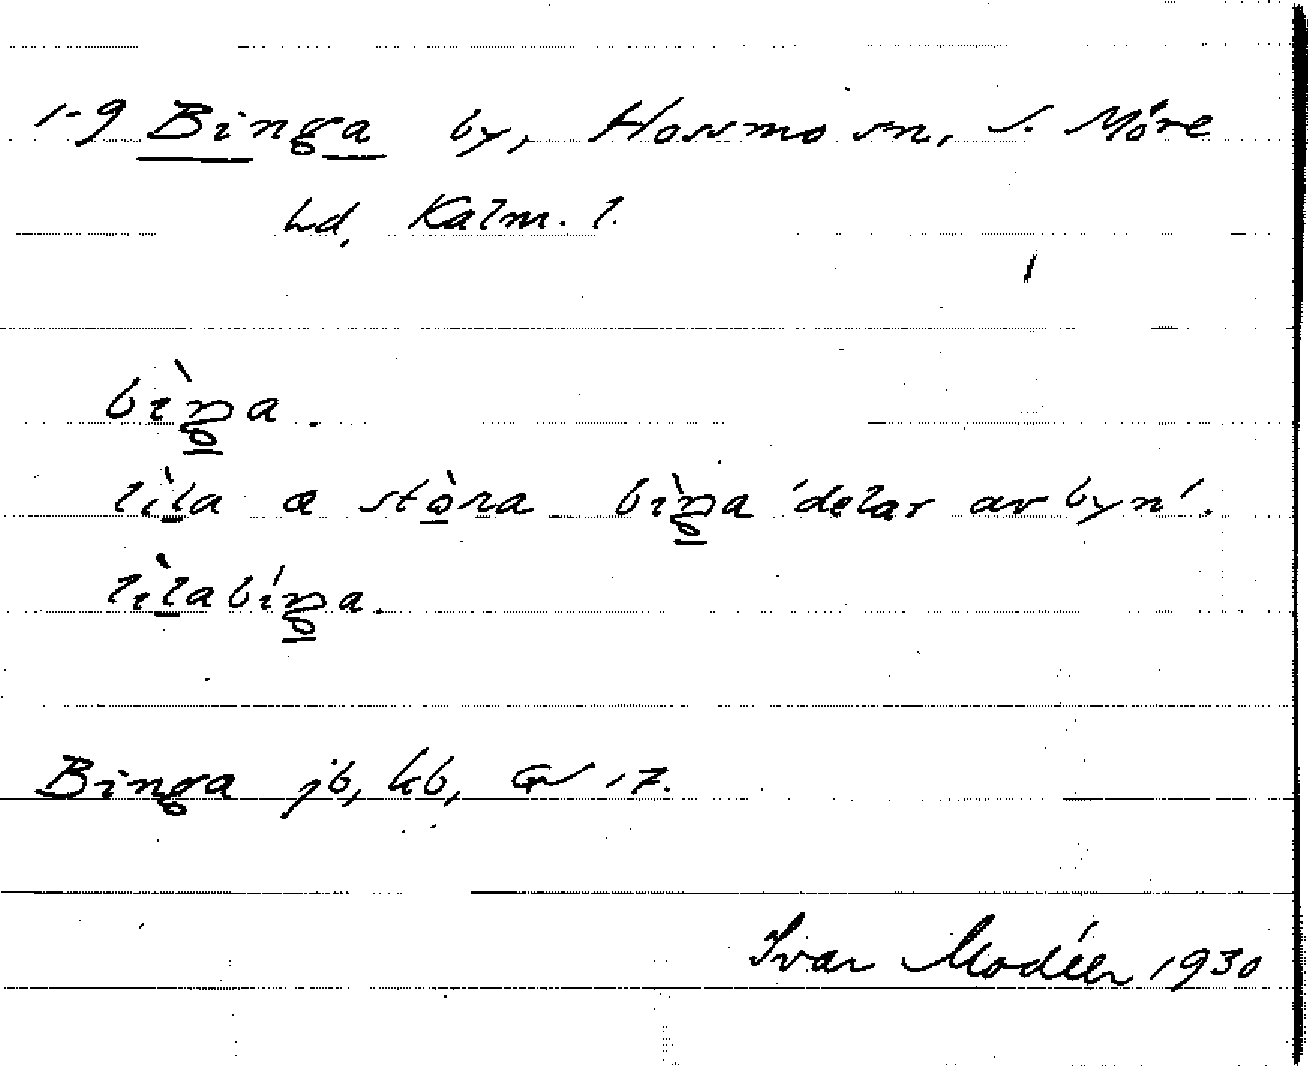 1-9 Binga by, Hossmo sn, S. Möre
hd, Kalm. l.
bìŋa.
lìla æ stòra bìŋa 'delar av byn'.
lìlabíŋa.
Binga jb, kb, GV 17.
Ivar Modéer 1930